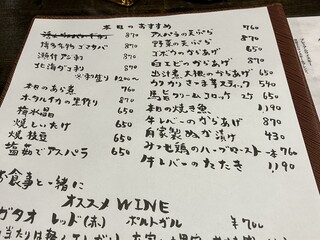 本日のおすすめ
博多名物ゴマサバ 870
瀬付アジ刺 870
北海ダコ刺 870
本日のあら煮 760
ホタルイカの生作り 870
揚水晶 650
焼しいたけ 650
焼枝豆 650
塩茹でアスパラ 650
アスパラの天ぷら 760
野菜の天ぷら 870
ゴボウのからあげ 650
白エビのからあげ 870
出汁煮大根のからあげ 650
カリカリさつま芋スティック 550
馬鈴クリームコロッケ 2ケ 650
本日の焼き魚 1,190
牛レバーのからあげ 870
自家製ぬか漬け 430
みつせ鶏のハーブロースト 一本 760
牛レバーのたたき 1,190
お食事と一緒に
オススメ WINE
ガタオ レッド(赤) ポルトガル ¥700